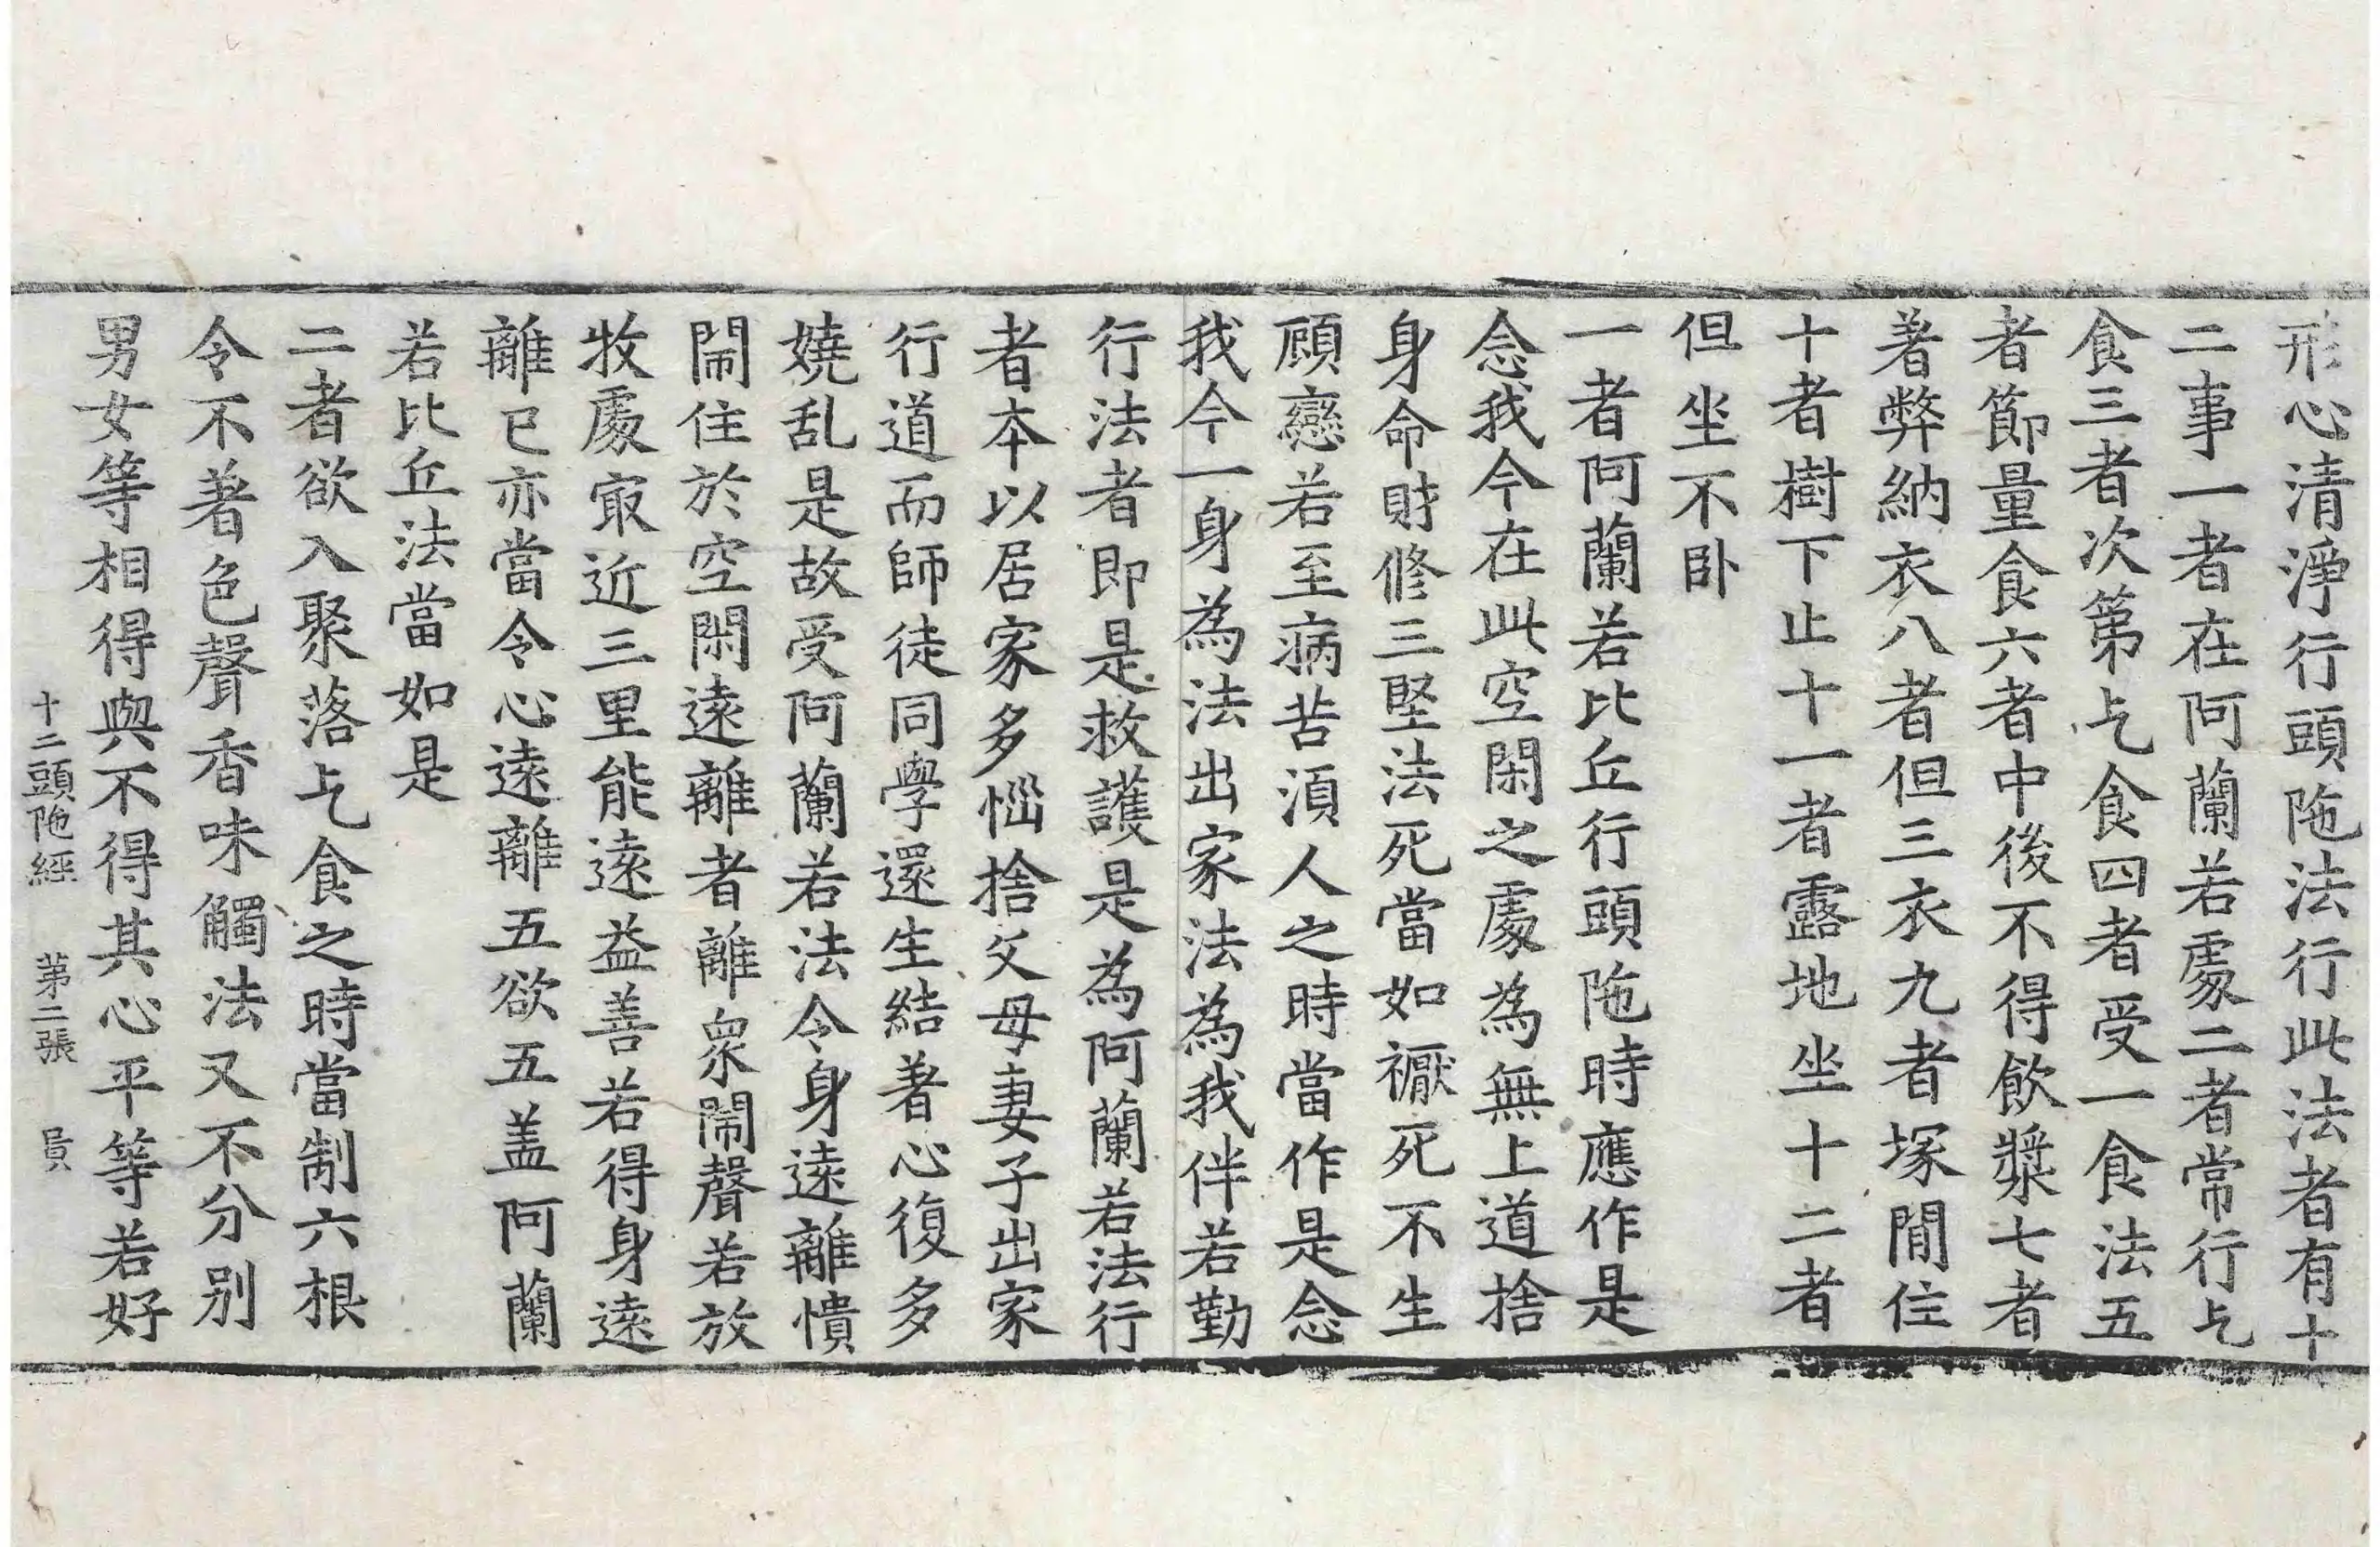 形心清淨行頭陁法行此法者有十
二事一者在阿蘭若處二者常行乞
食三者次第乞食四者受一食法五
者節量食六者中後不得飲漿七者
著弊納衣八者但三衣九者塚間住
十者樹下止十一者露地坐十二者
但坐不卧
一者阿蘭若比丘行頭陁時應作是
念我今在此空閑之處為無上道捨
身命財修三堅法死當如禽死不生
顧戀若至病苦湏人之時當作是念
我今一身為法出家法為我伴若勤
行法者即是救護是為阿蘭若法行
者本以居家多惱捨父母妻子出家
行道而師徒同學還生結著心復多
嬈乱是故受阿蘭若法令身遠離憒
閙住於空閑遠離者離衆閙聲若放
牧處㝡近三里能遠益善若得身遠
離已亦當令心遠離五欲五盖阿蘭
若比丘法當如是
二者欲入聚落乞食之時當制六根
令不著色聲香味觸法又不分别
男女等相得與不得其心平等若好
十二頭陁經 第二張 㒷